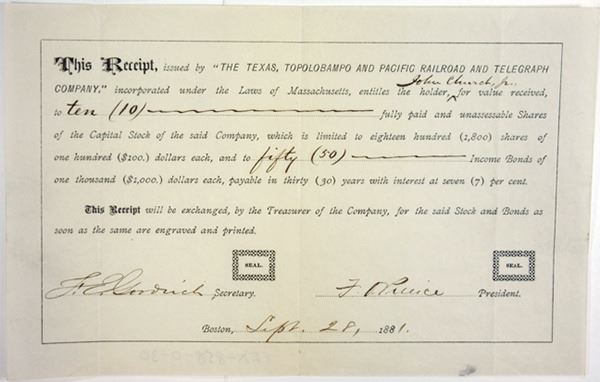 This Receipt, issued by "THE TEXAS, TOPOLOBAMPO AND PACIFIC RAILROAD AND TELEGRAPH
John Church, Jr.
COMPANY," incorporated under the Laws of Massachusetts, entitles the holder, for value received,
to ten (10) fully paid and unassessable Shares
of the Capital Stock of the said Company, which is limited to eighteen hundred (1,800) shares of
one hundred ($100.) dollars each, and to fifty (50) Income Bonds of
one thousand ($1,000.) dollars each, payable in thirty (30) years with interest at seven (7) per cent.
This Receipt will be exchanged, by the Treasurer of the Company, for the said Stock and Bonds as
soon as the same are engraved and printed.
SEAL. SEAL.
F. E. Goodrich Secretary. F. O. President.
Boston, Sept. 28, 1881.